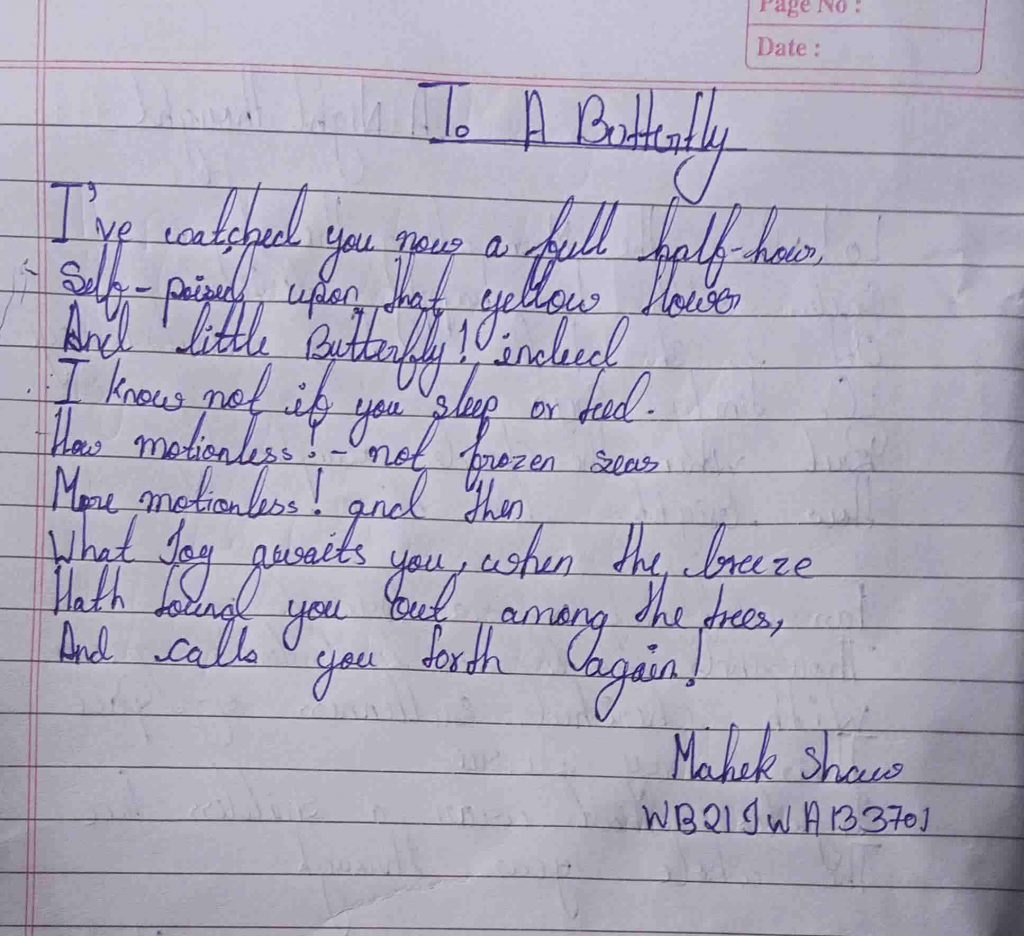 Page No :
Date :
To A Butterfly
I've watched you now a full half-hour,
Self-poised upon that yellow flower
And little Butterfly! indeed
I know not if you sleep or feed.
How motionless! - not frozen seas
More motionless! and then
What Joy awaits you, when the breeze
Hath found you out among the trees,
And calls you forth again!
Mahek Shaw
WB21SWA133701